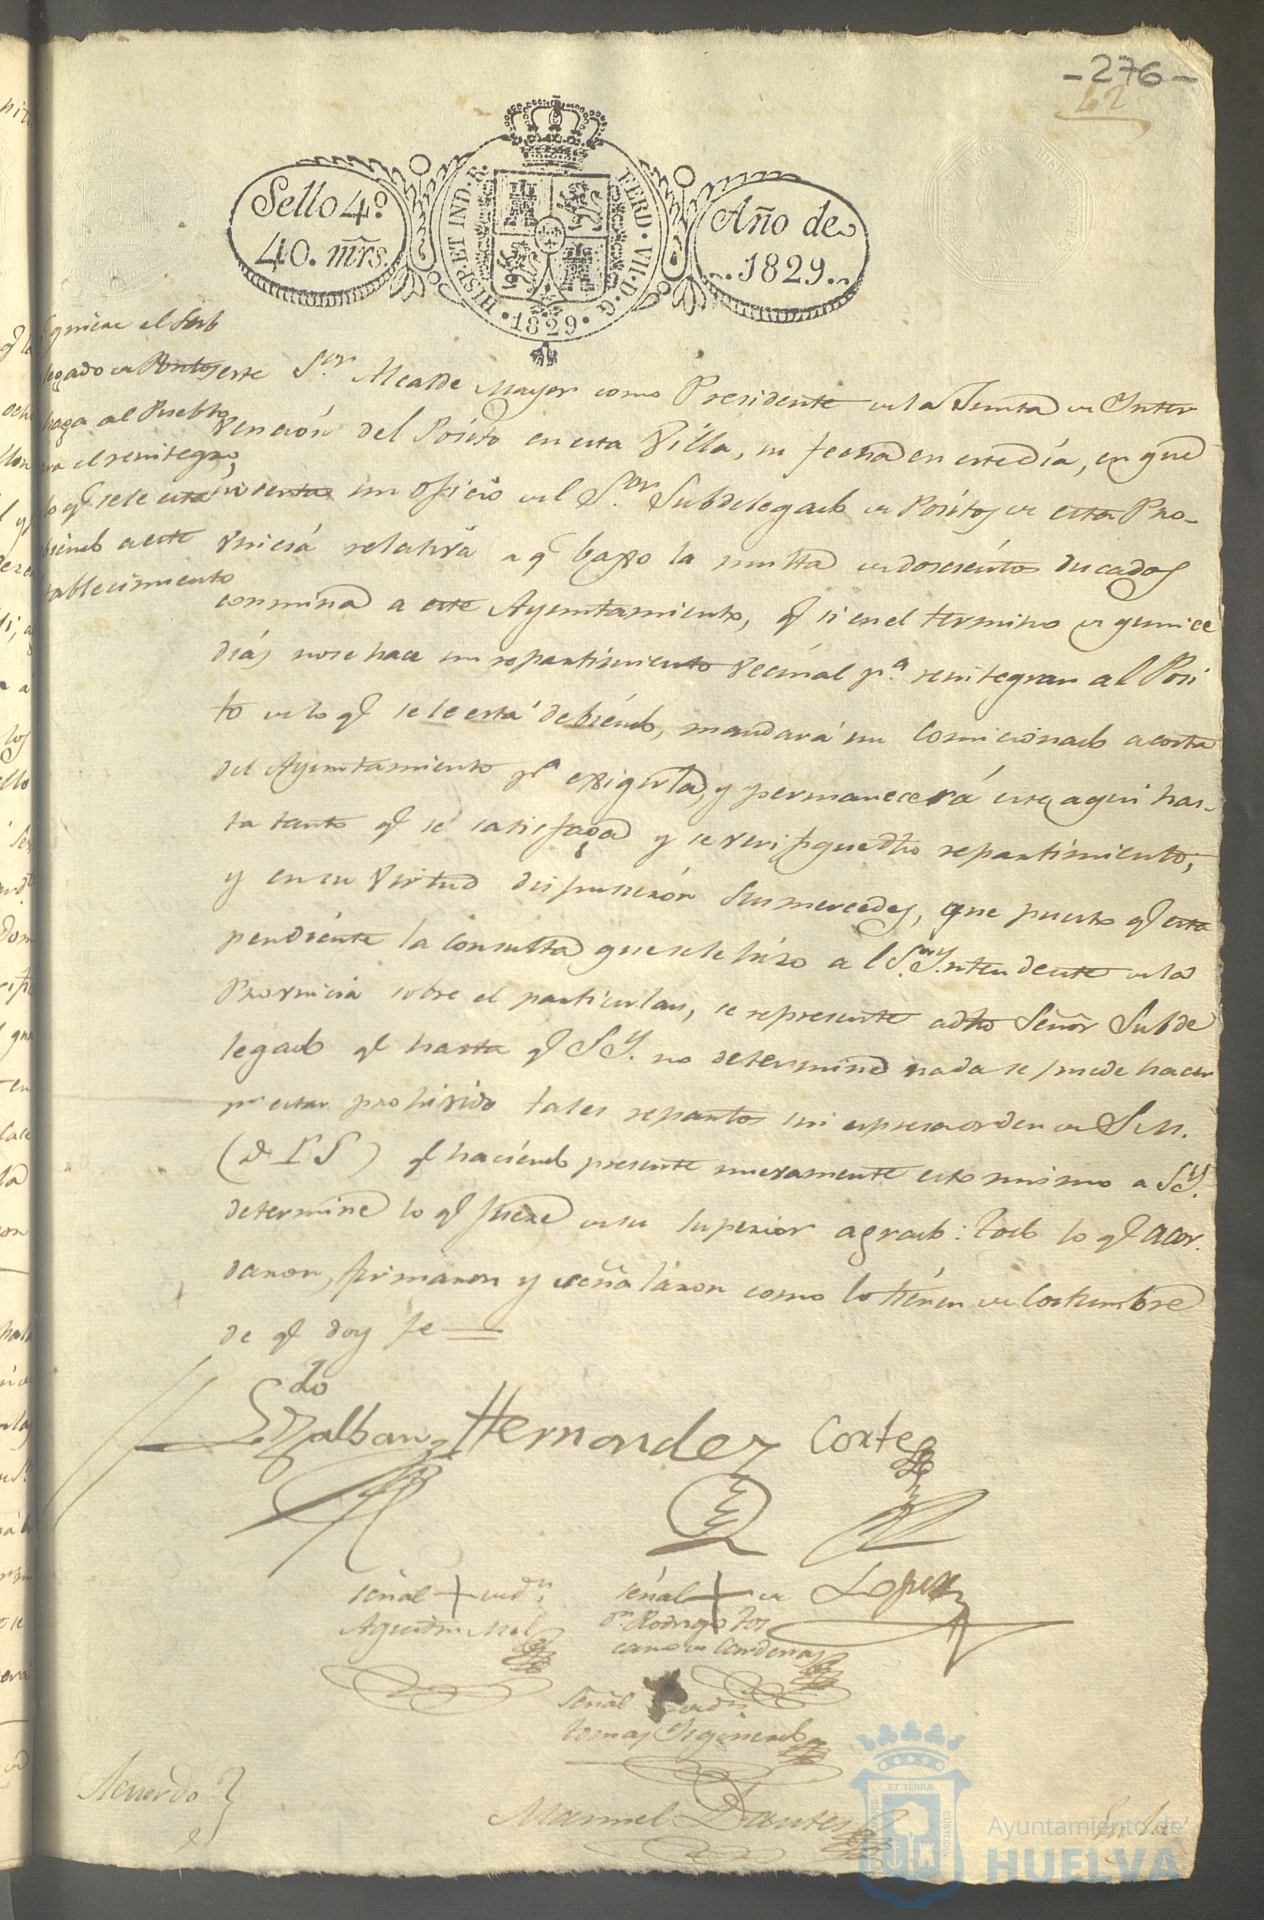 -276-
42
Sello 4º
40. mrs.
HISP. ET IND. R.
FERD. VII. D. G.
1829
Año de
1829
quiere el Sub
legado de Positos
haga al Pueblo
el reintegro
lo q.e se le esta
biendo a este
tablecimiento
este S.or Alcalde Mayor como Presidente de la Junta de Inter
vencion del Posito en esta Villa, su fecha en este dia, en que
inserta un oficio del S.or Subdelegado de Positos de esta Pro-
vincia relativa a q.e baxo la multa de doscientos ducados
conmina a este Ayuntamiento, q.e si en el termino de quince
dias no se hace un repartimiento vecinal p.a reintegrar al Posi
to de lo q.e se le está debiendo, mandará un Comicionado a costa
del Ayuntamiento p.a exigirla, y permanecerá este aqui has-
ta tanto q.e se satisfaga y se verifique dho repartimiento;
y en su virtud dispusieron Sus mercedes, que puesto q.e esta
pendiente la consulta que se le hizo al S.or Yntendente de la
Provincia sobre el particular, se represente a dho Señor Subde
legado q.e hasta q.e S.Y. no determine nada se puede hacer
p.r estar prohivido tales repartos sin expresa orden de S.M.
(D. L. G.) q.e haciendo presente nuevamente esto mismo a S.Y.
determine lo q.e fuere de su superior agrado: todo lo q.e acor
daron, firmaron y señalaron como lo tienen de Costumbre
de q.e doy fe
Ldo
Hernandez Corte
señal + de d.n señal + de Lopez
Agustin Mel d.n Rodrigo Tos
cano de Cardenas
señal de d.n
Tomas Figueredo
Manuel Dantes
Acuerdo
En la
ET TERRÆ
CUSTODIA
Ayuntamiento de
HUELVA